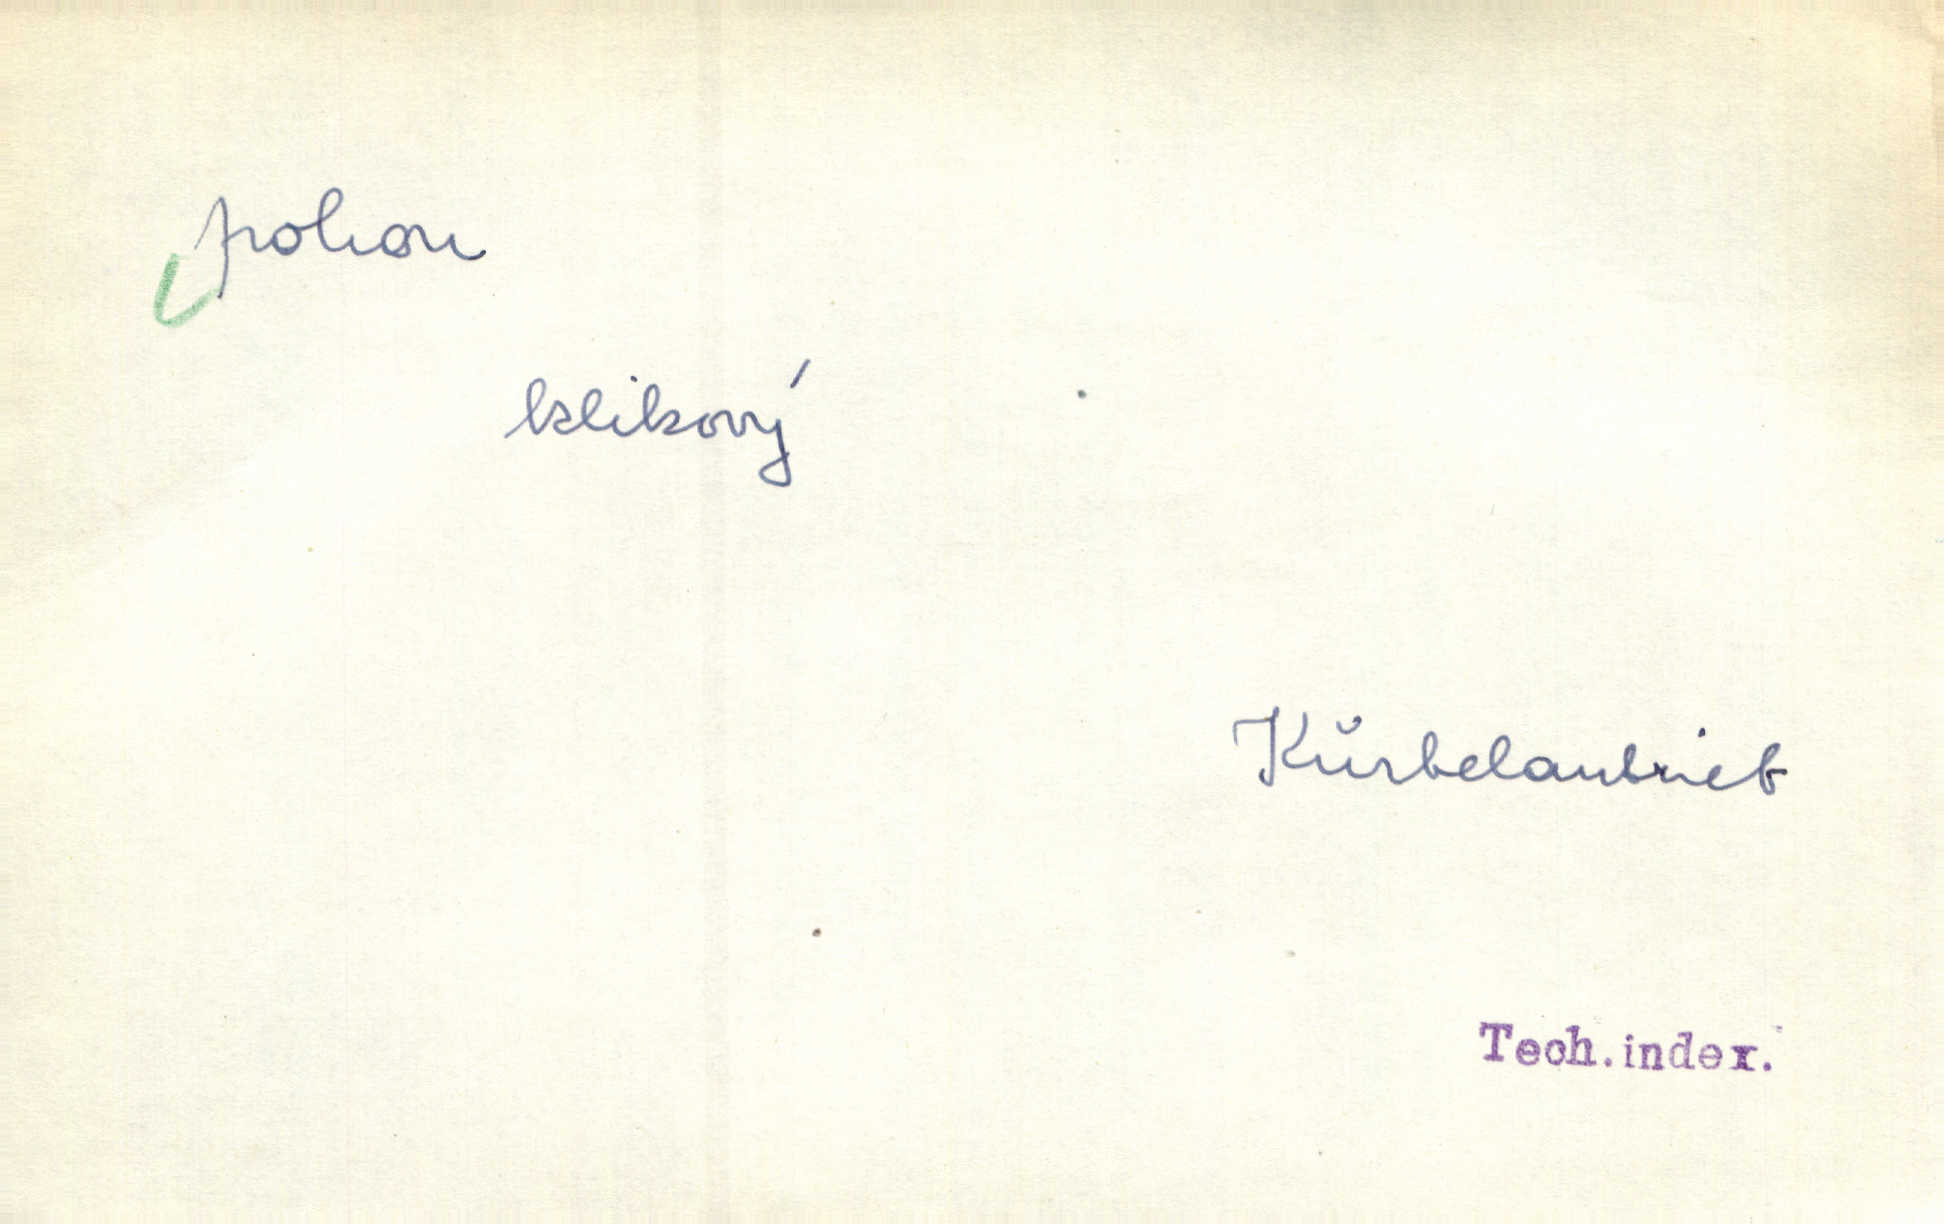 pohon
klikový
Kürbelantrieb
Tech.index.